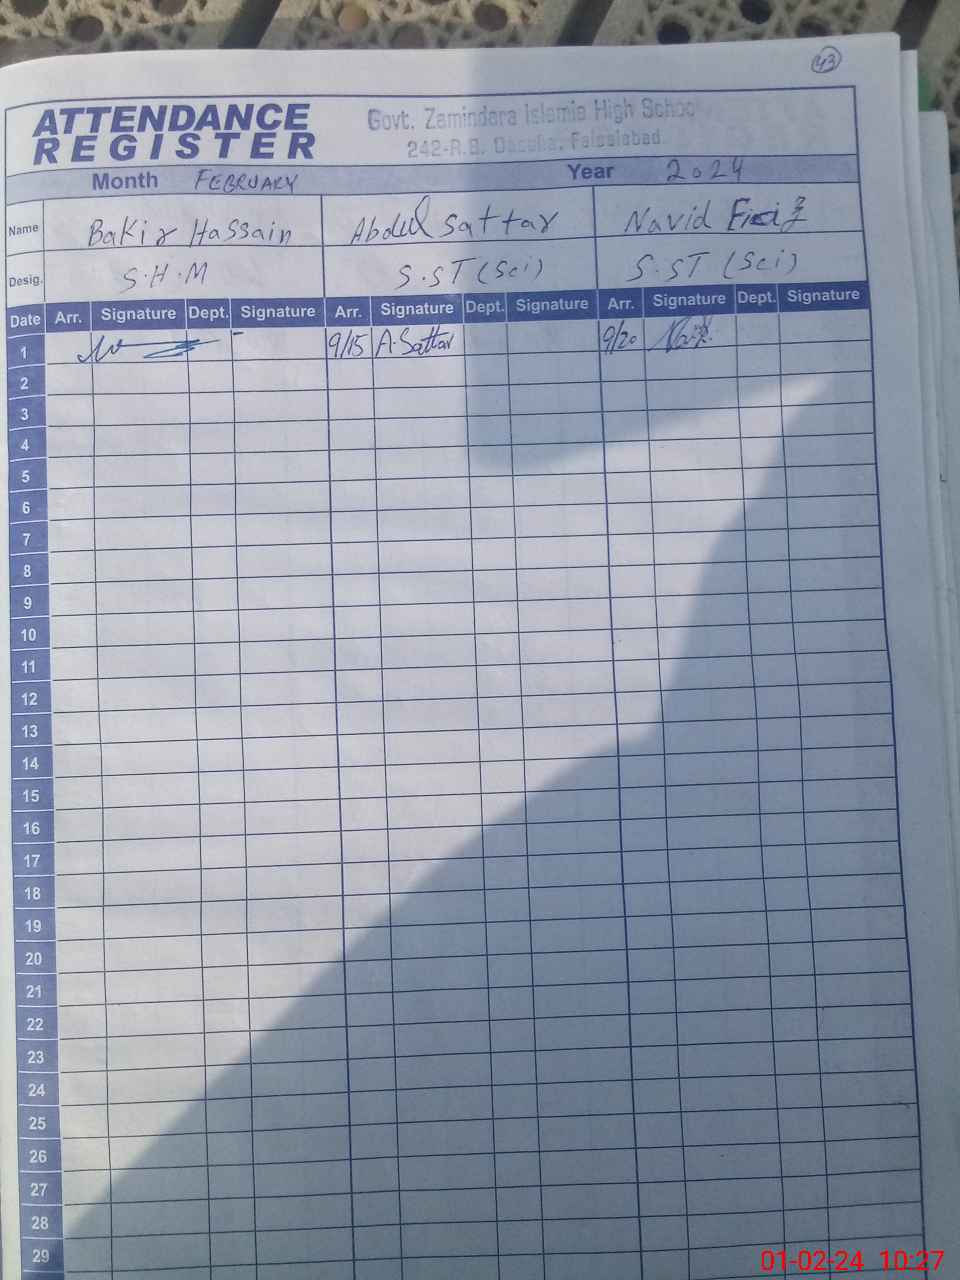 43
ATTENDANCE
REGISTER
Govt. Zamindara Islamia High School
242-R.B. Dasuha, Faisalabad.
Month FEBRUARY Year 2024
Name Bakir Hassain Abdul Sattar Navid
Desig. S.H.M S.ST (Sci) S.ST (Sci)
Date Arr. Signature Dept. Signature Arr. Signature Dept. Signature Arr. Signature Dept. Signature
1 9/15 A.Sattar 9/20
2
3
4
5
6
7
8
9
10
11
12
13
14
15
16
17
18
19
20
21
22
23
24
25
26
27
28
29
01-02-24 10:27